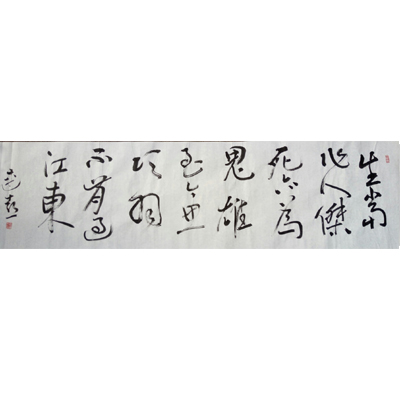 生當
作人傑
死亦為
鬼雄
至今思
項羽
不肯過
江東